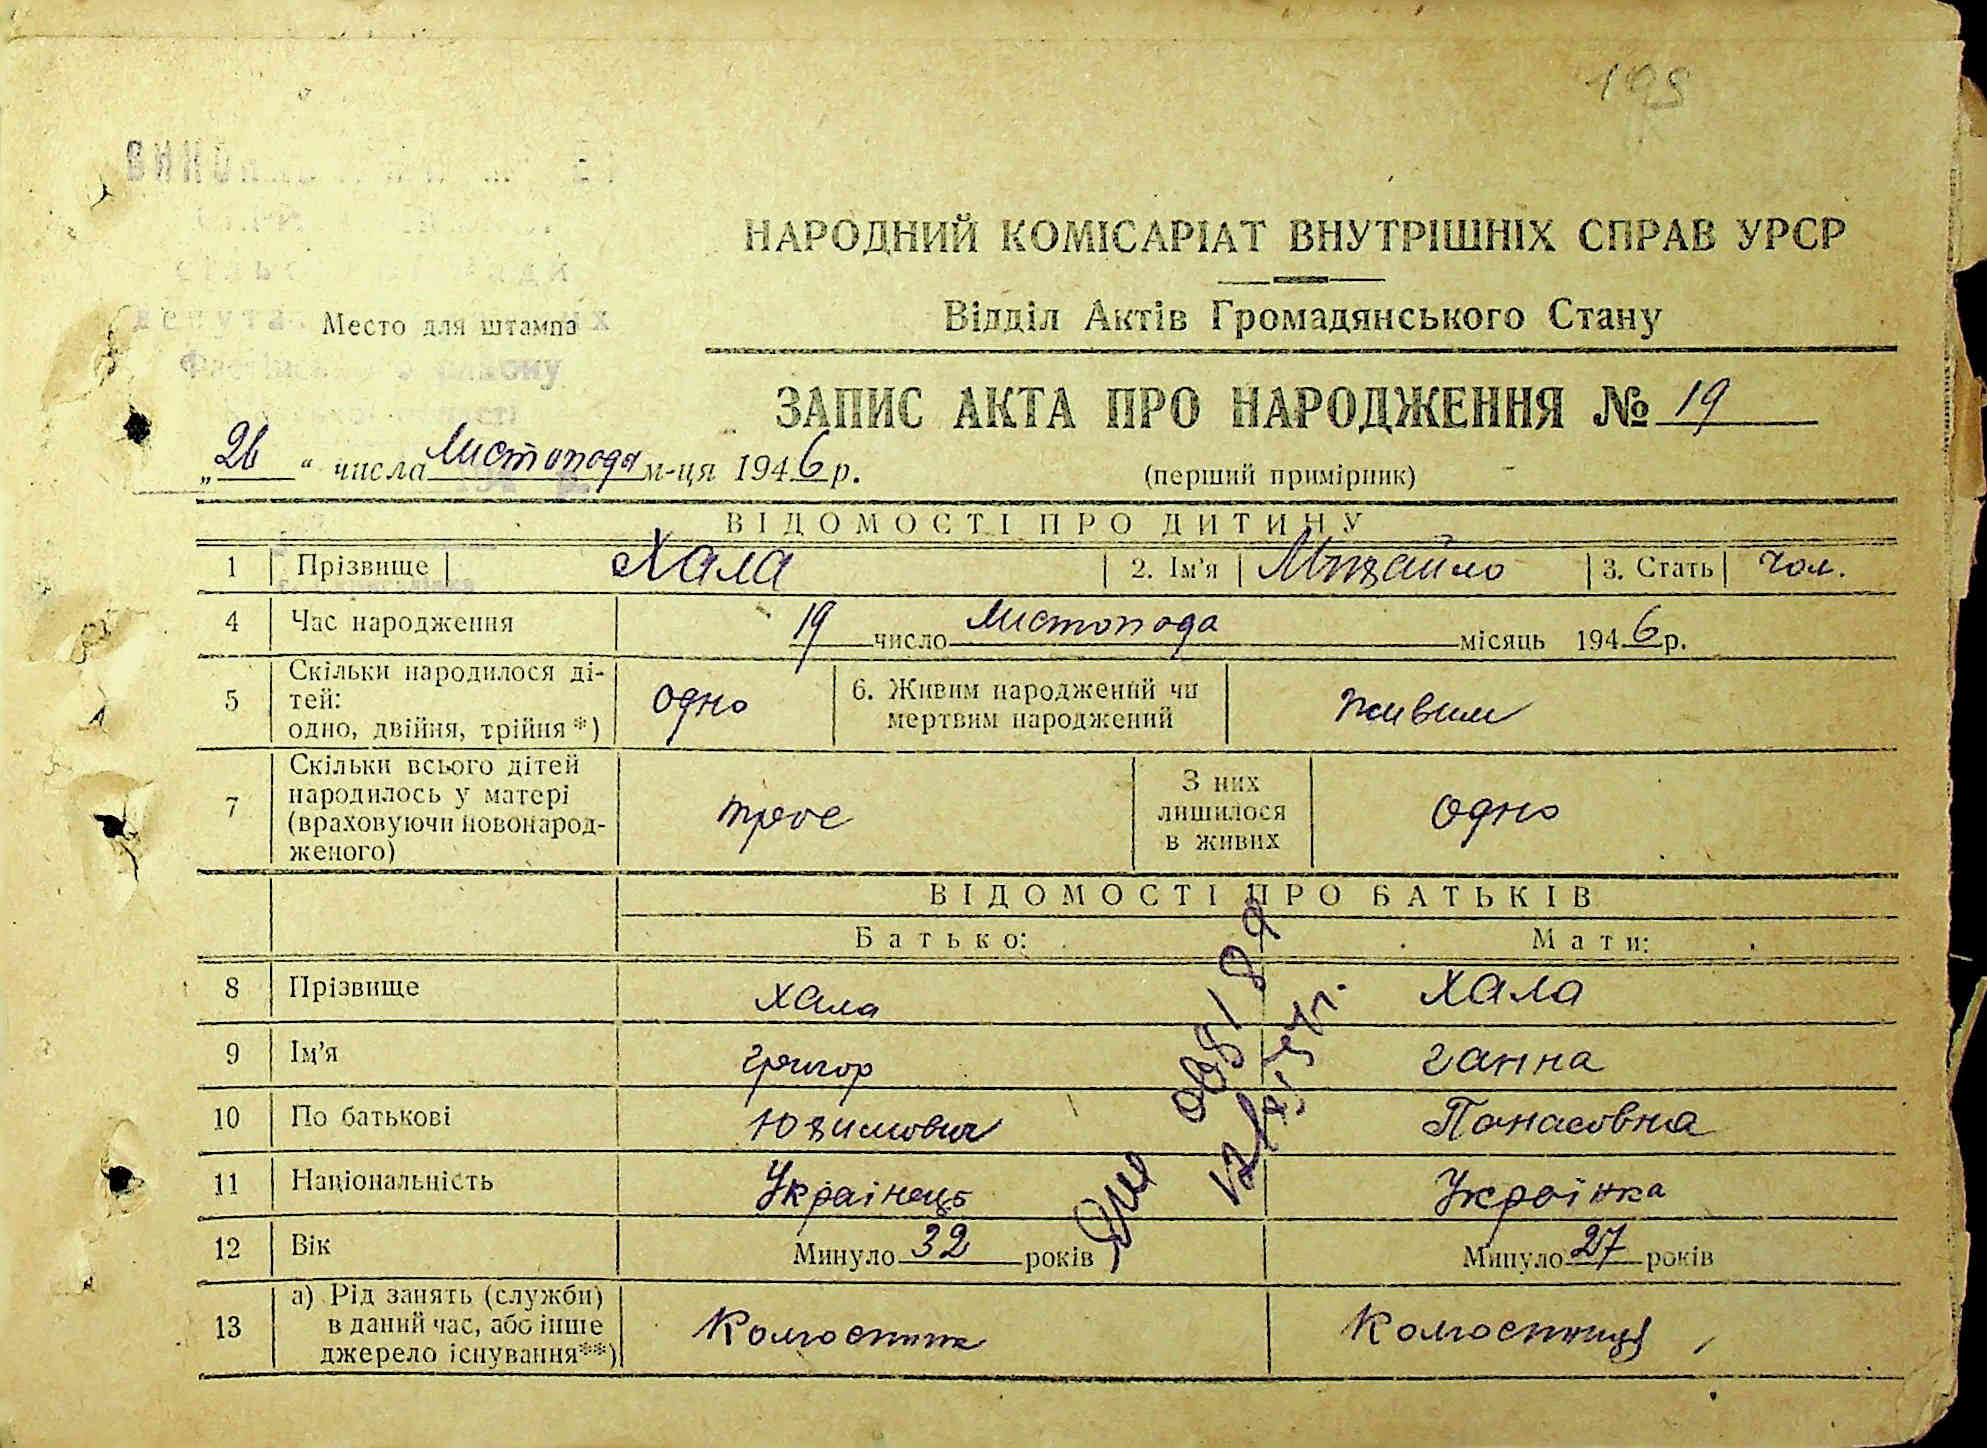 199
НАРОДНИЙ КОМІСАРІАТ ВНУТРІШНІХ СПРАВ УРСР
Відділ Актів Громадянського Стану
Место для штампа
району
ЗАПИС АКТА ПРО НАРОДЖЕННЯ № 19
„26 “ числа Листопада м-ця 1946 р.
(перший примірник)
ВІДОМОСТІ ПРО ДИТИНУ
1 Прізвище Хала 2. Ім'я Михайло 3. Стать чол.
4 Час народження 19 число Листопада місяць 1946 р.
5 Скільки народилося ді-
тей:
одно, двійня, трійня *) одно 6. Живим народжений чи
мертвим народжений живим
7 Скільки всього дітей
народилось у матері
(враховуючи новонарод-
женого) троє З них
лишилося
в живих одно
ВІДОМОСТІ ПРО БАТЬКІВ
Батько: Мати:
8 Прізвище Хала Хала
9 Ім'я Григор Ганна
10 По батькові Юхимович Панасовна
11 Національність Українець Українка
12 Вік Минуло 32 років Минуло 27 років
13 а) Рід занять (служби)
в даний час, або інше
джерело існування**) Колгоспник Колгоспниця